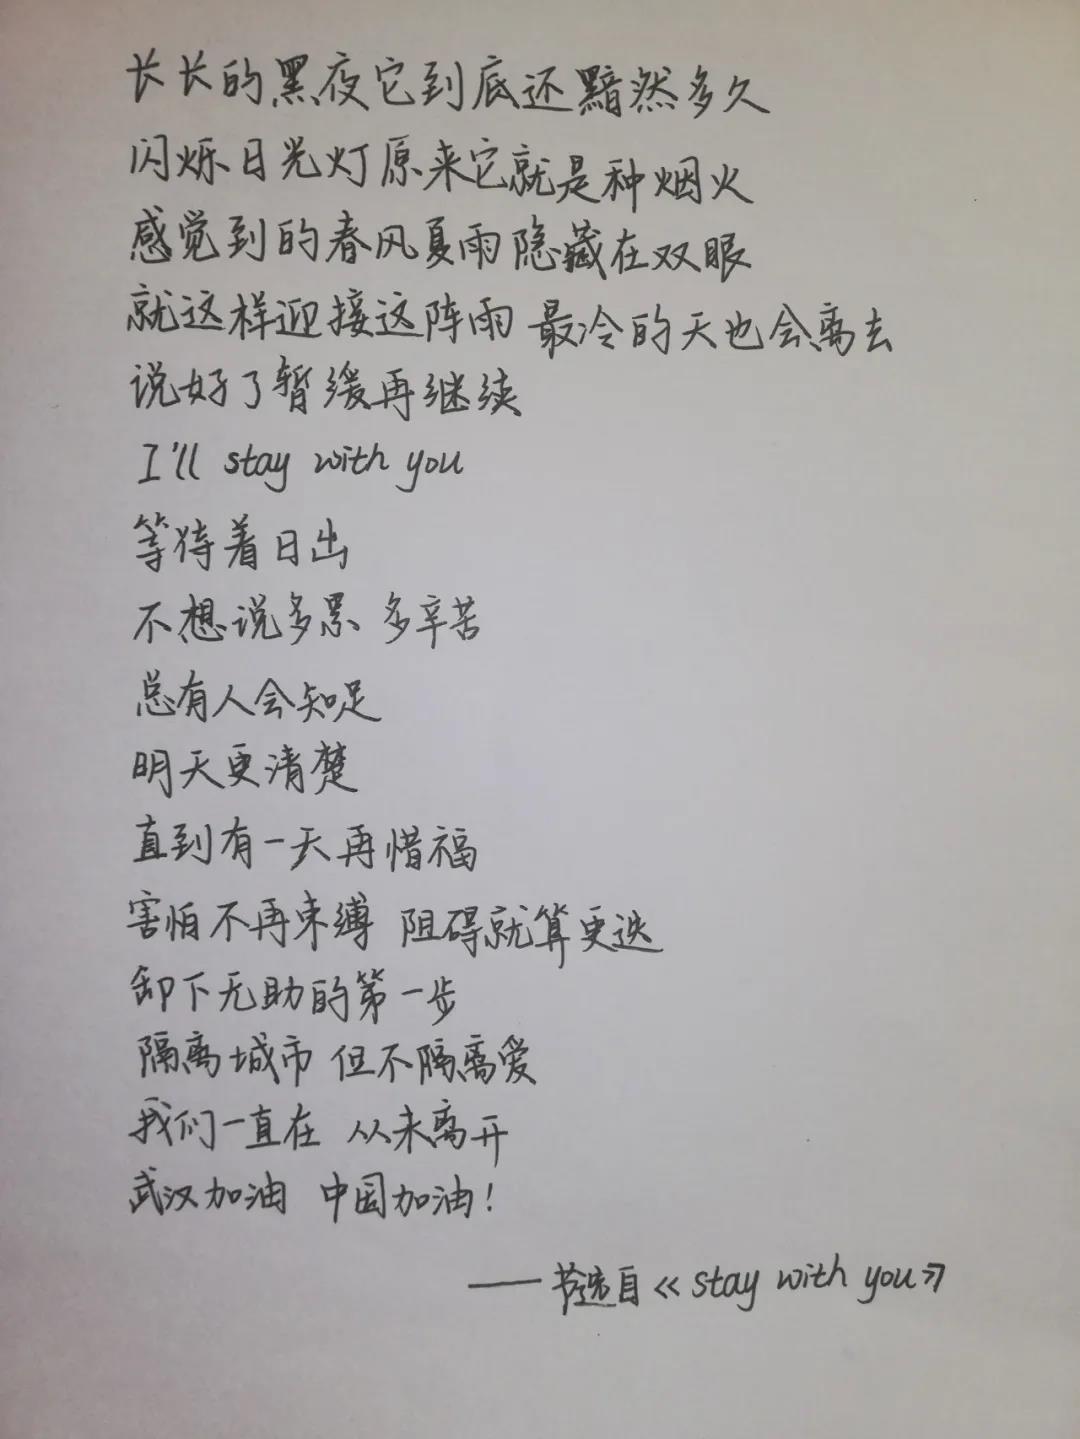 长长的黑夜它到底还黯然多久
闪烁日光灯原来它就是种烟火
感觉到的春风夏雨隐藏在双眼
就这样迎接这阵雨 最冷的天也会离去
说好了暂缓再继续
I'll stay with you
等待着日出
不想说多累 多辛苦
总有人会知足
明天更清楚
直到有一天再惜福
害怕不再束缚 阻碍就算更迭
卸下无助的第一步
隔离城市 但不隔离爱
我们一直在 从未离开
武汉加油 中国加油!
——节选自《stay with you》